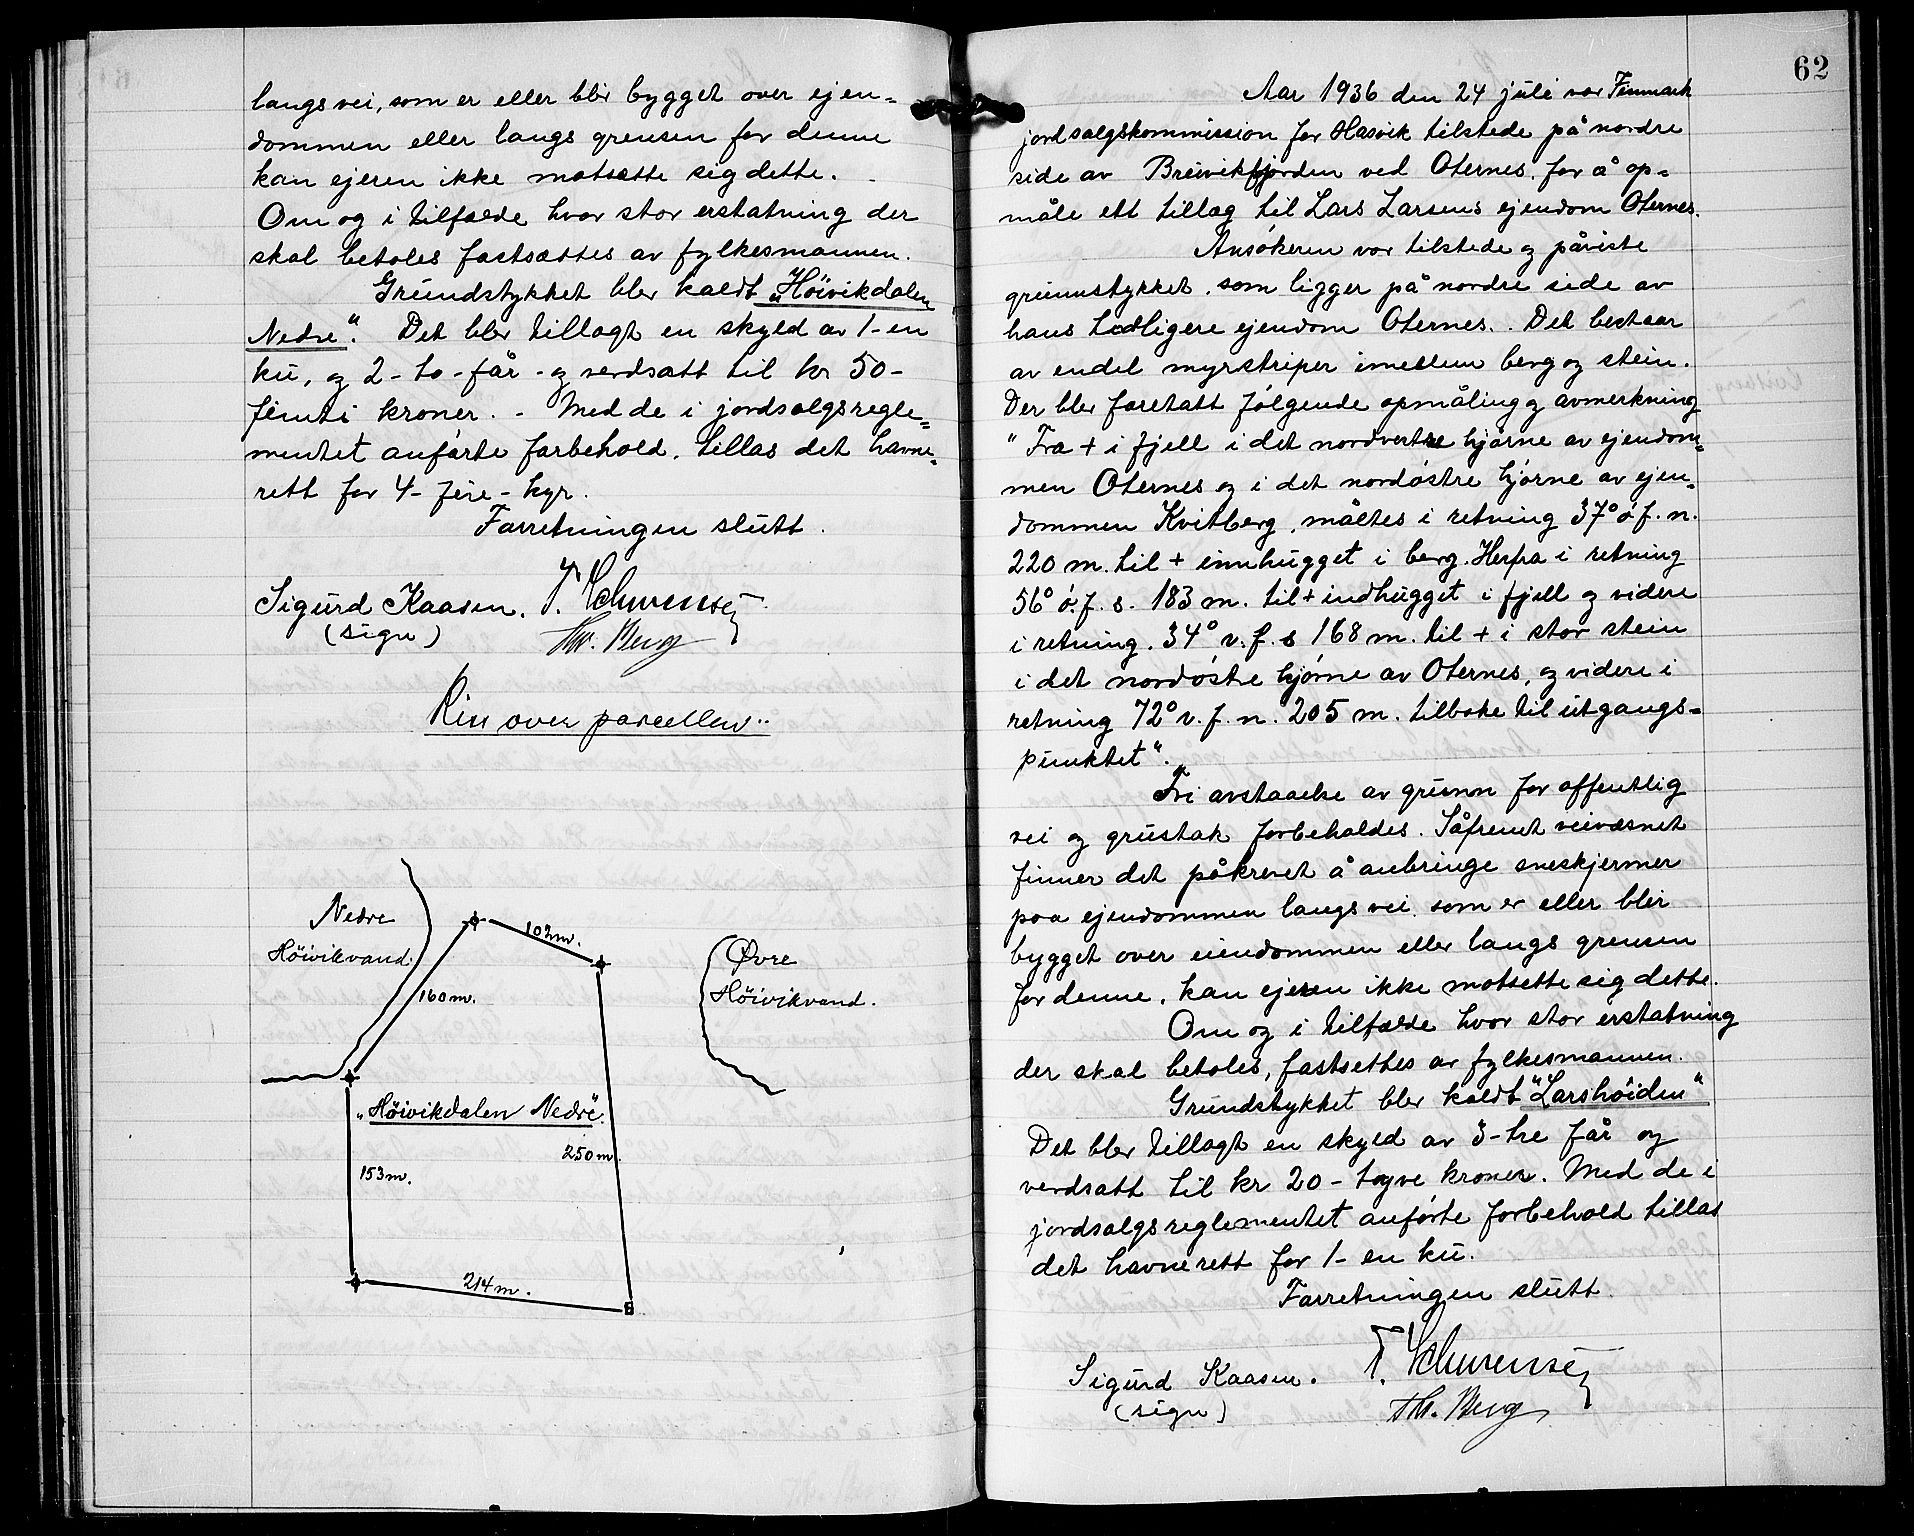 langs vei, som er eller blir bygget over ejen=
dommen eller langs grensen for denne
kan ejeren ikke motsætte sig dette.
Om og i tilfælde hvor stor erstatning der
skal betales fastsættes av fylkesmannen.
Grundstykket blev kaldt „Höivikdalen
Nedre". Det blev tillagt en skyld av 1-en
ku, og 2-to-får - og verdsatt til kr 50-
femti kroner. - Med de i jordsalgsregle=
mentet anførte forbehold, tillas det havne=
rett for 4-fire-kyr.
Forretningen slutt.
Sigurd Kaasen.
(sign)
Th. Berg
Riss over parcellen"
Nedre
Höivikvand
102m.
Øvre
Höivikvand.
160m.
„Höivikdalen Nedre".
250m.
153m.
214m.
62
Aar 1936 den 24 juli var Finmark
jordsalgskommission for Hasvik tilstede på nordre
side av Breivikfjorden ved Oternes, for å op=
måle ett tillæg til Lars Larsens ejendom Oternes.
Ansøkeren var tilstede og påviste
grunnstykket, som ligger på nordre side av
hans tidligere ejendom Oternes. Det bestaar
av endel myrstriper imellem berg og stein.
Der blev foretatt følgende opmåling og avmerkning
" Fra + i fjell i det nordvestre hjørne av ejendom=
men Oternes og i det nordøstre hjørne av ejen=
dommen Kvitberg, måltes i retning 37° ø.f.n.
220 m. til + innhugget i berg. Herfra i retning
56° ø.f.s. 183 m. til + indhugget i fjell og videre
i retning. 34° v.f.s 168 m. til + i stor stein
i det nordøstre hjørne av Oternes, og videre i
retning 72° v.f.n. 205 m. tilbake til utgangs=
punktet".
Fri avstaaelse av grunn for offentlig
vei og grustak forbeholdes. Såfremt veivæsnet
finner det påkrevet å anbringe sneskjermer
paa ejendommen langs vei som er eller blir
bygget over eiendommen eller langs grensen
for denne, kan ejeren ikke motsette sig dette.
Om og i tilfælde hvor stor erstatning
der skal betales, fastsettes av fylkesmannen.
Grundstykket blev kaldt "Larshöiden"
Det blev tillagt en skyld av 3-tre får og
verdsatt til kr 20-tyve kroner. Med de i
jordsalgsreglementet anførte forbehold tillas
det havnerett for 1-en ku.
Forretningen slutt.
Sigurd Kaasen.
(sign)
Th. Berg